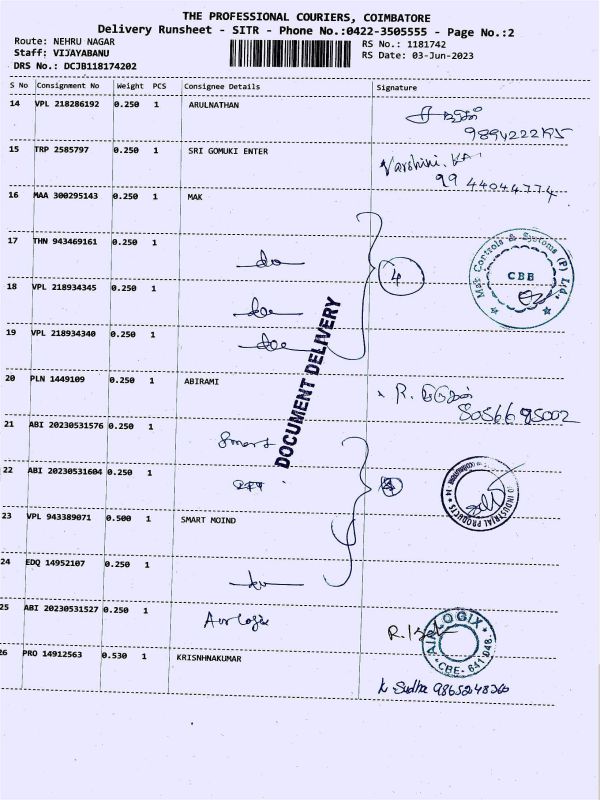 THE PROFESSIONAL COURIERS, COIMBATORE
Delivery Runsheet - SITR - Phone No.:0422-3505555 - Page No.:2
Route: NEHRU NAGAR
Staff: VIJAYABANU
DRS No.: DCJB118174202
RS No.: 1181742
RS Date: 03-Jun-2023
S No Consignment No Weight PCS Consignee Details Signature
14 VPL 218286192 0.250 1 ARULNATHAN
15 TRP 2585797 0.250 1 SRI GOMUKI ENTER Varshini.
99 44044774
16 MAA 300295143 0.250 1 MAK
17 THN 943469161 0.250 1 do 4
Mak Controls & Systems (P) Ltd.,
CBE
18 VPL 218934345 0.250 1 do
19 VPL 218934340 0.250 1 do
DOCUMENT DELIVERY
20 PLN 1449109 0.250 1 ABIRAMI R.
21 ABI 20230531576 0.250 1 Smart
22 ABI 20230531604 0.250 1
INDUSTRIAL PRODUCTS
23 VPL 943389071 0.500 1 SMART MOIND
24 EDQ 14952107 0.250 1 do
25 ABI 20230531527 0.250 1 R.
AIRLOGIX
CBE- 641 048.
26 PRO 14912563 0.530 1 KRISNHNAKUMAR
K Sudha